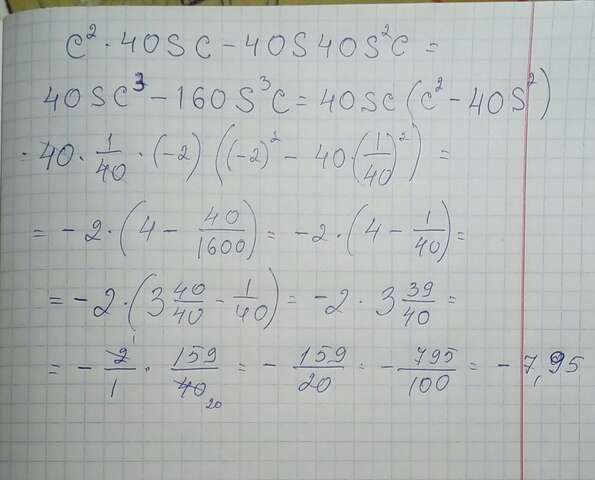 c² · 40sc - 40s40s²c =
40sc³ - 160s³c = 40sc (c² - 40s²)
= 40 · 1/40 · (-2) ((-2)² - 40 · (1/40)²) =
= -2 · (4 - 40/1600) = -2 · (4 - 1/40) =
= -2 · (3 40/40 - 1/40) = -2 · 3 39/40 =
= - 2/1 · 159/40 1 20 = - 159/20 = - 795/100 = - 7,95